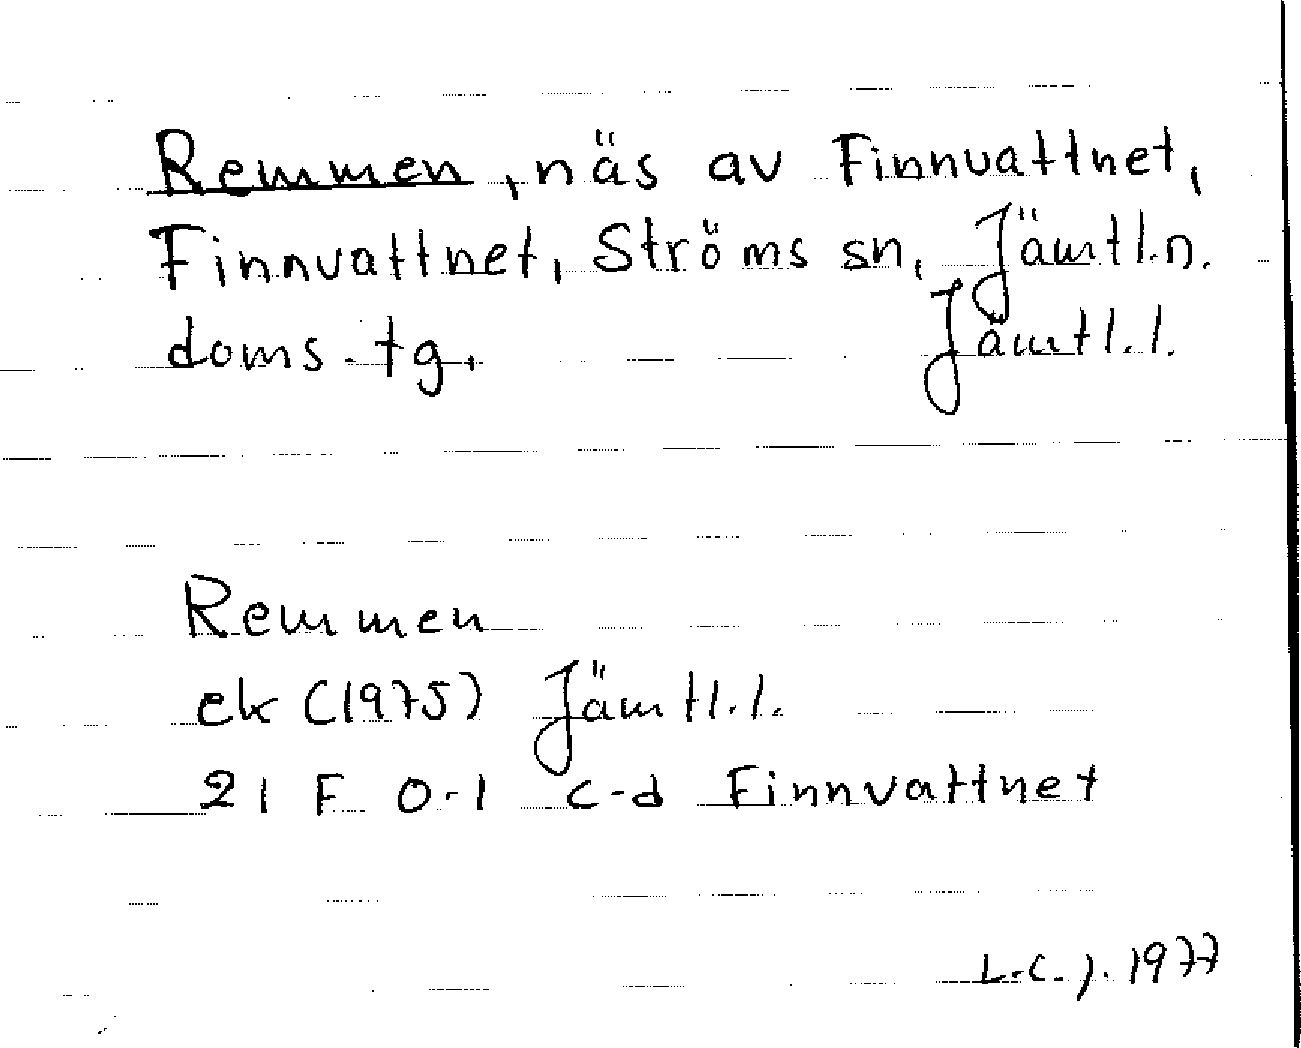 Remmen, näs av Finnvattnet,
Finnvattnet, Ströms sn, Jämtl.n.
doms.tg. Jämtl.l.
Remmen
ek (1975) Jämtl.l.
21 F 0-1 c-d Finnvattnet
L.C.J. 1977